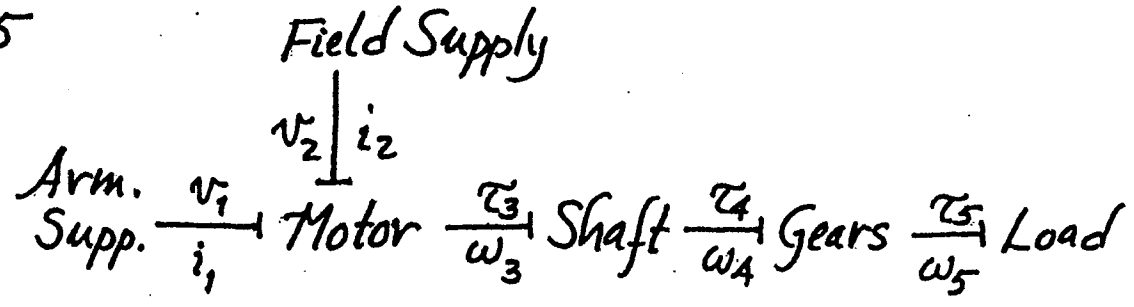 5
Field Supply
v₂ i₂
Arm. Supp. v₁ i₁ Motor τ₃ ω₃ Shaft τ₄ ω₄ Gears τ₅ ω₅ Load